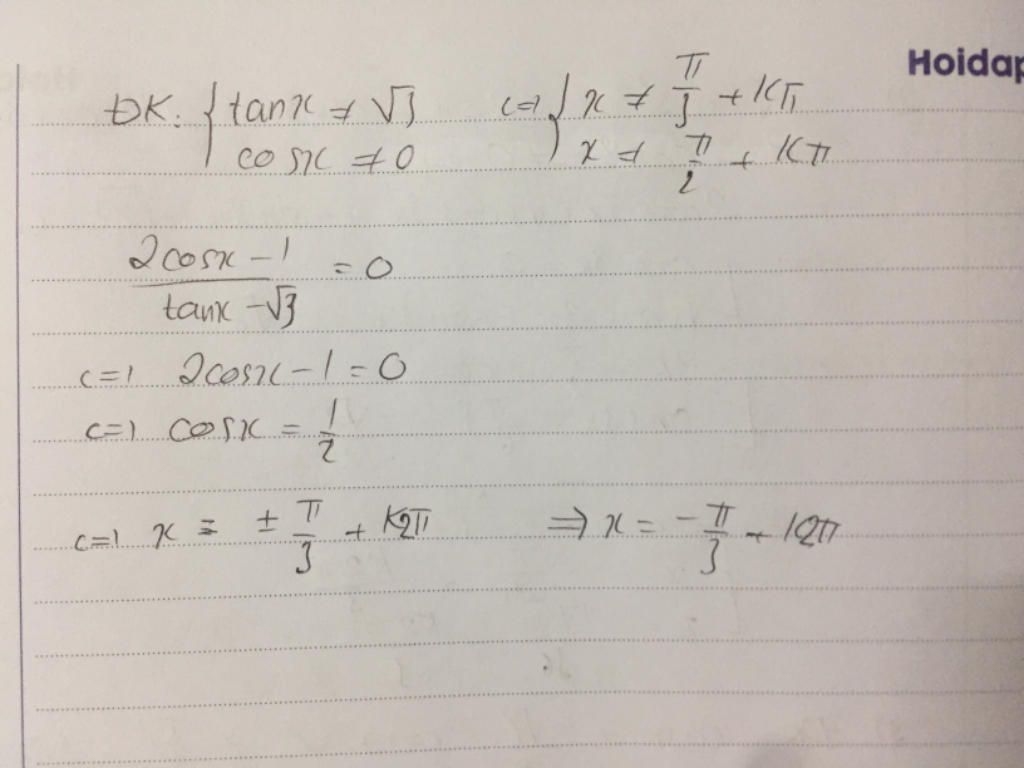 Hoidap
ĐK: { tanx ≠ √3 <=> { x ≠ π/3 + Kπ
cosx ≠ 0 x ≠ π/2 + Kπ
(2cosx - 1)/(tanx - √3) = 0
<=> 2cosx - 1 = 0
<=> cosx = 1/2
<=> x = ± π/3 + K2π => x = -π/3 + K2π